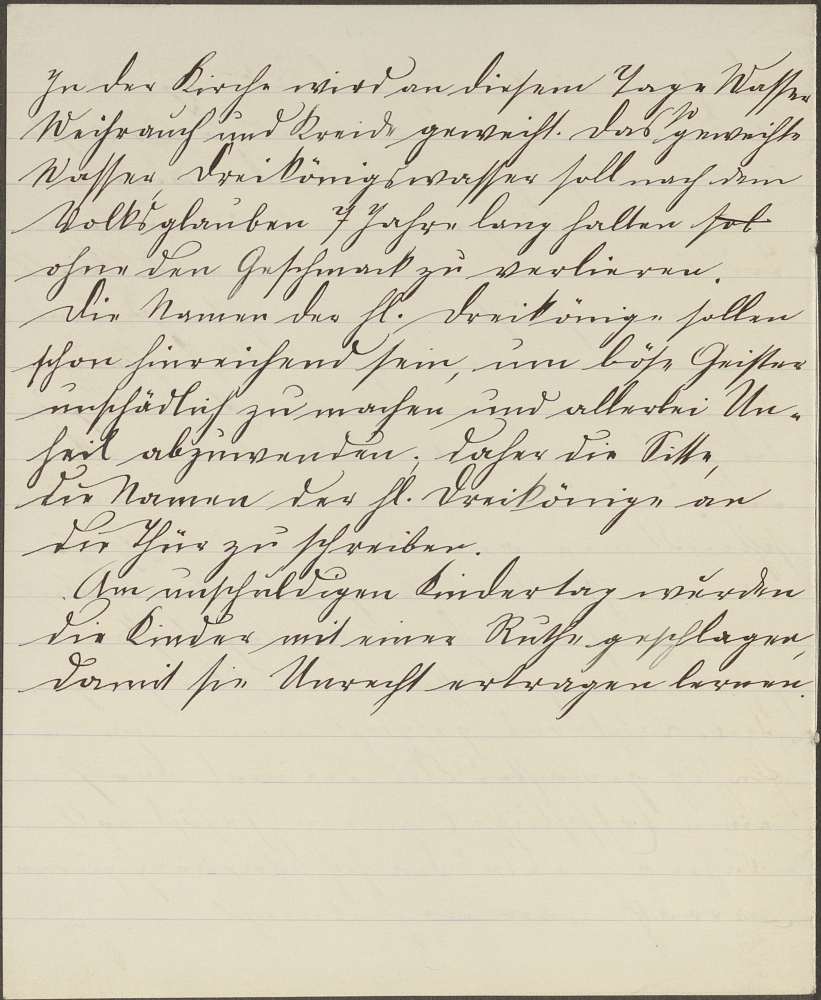 In der Kirche wird an diesem Tage Wasser
Weihrauch und Kreide geweiht. Das so geweihte
Wasser, Dreikönigswasser soll nach dem
Volksglauben 7 Jahre lang halten sol
ohne den Geschmack zu verlieren.
Die Namen der hl. Dreikönige sollen
schon hinreichend sein, um böse Geister
unschädlich zu machen und allerlei Un-
heil abzuwenden; daher die Sitte,
die Namen der hl. Dreikönige an
die Thür zu schreiben.
Am unschuldigen Kindertag wurden
die Kinder mit einer Ruthe geschlagen,
damit sie Unrecht ertragen lernen.